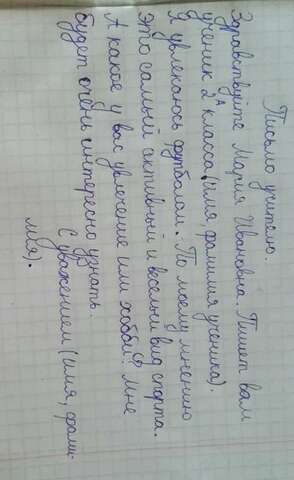 Письмо учителю.
Здравствуйте Мария Ивановна. Пишет вам
ученик 2А класса (имя, фамилия ученика).
Я увлекаюсь футболом. По моему мнению
это самый активный и веселый вид спорта.
А какое у вас увлечение или хобби? Мне
будет очень интересно узнать.
С уважением (имя, фами-
лия).